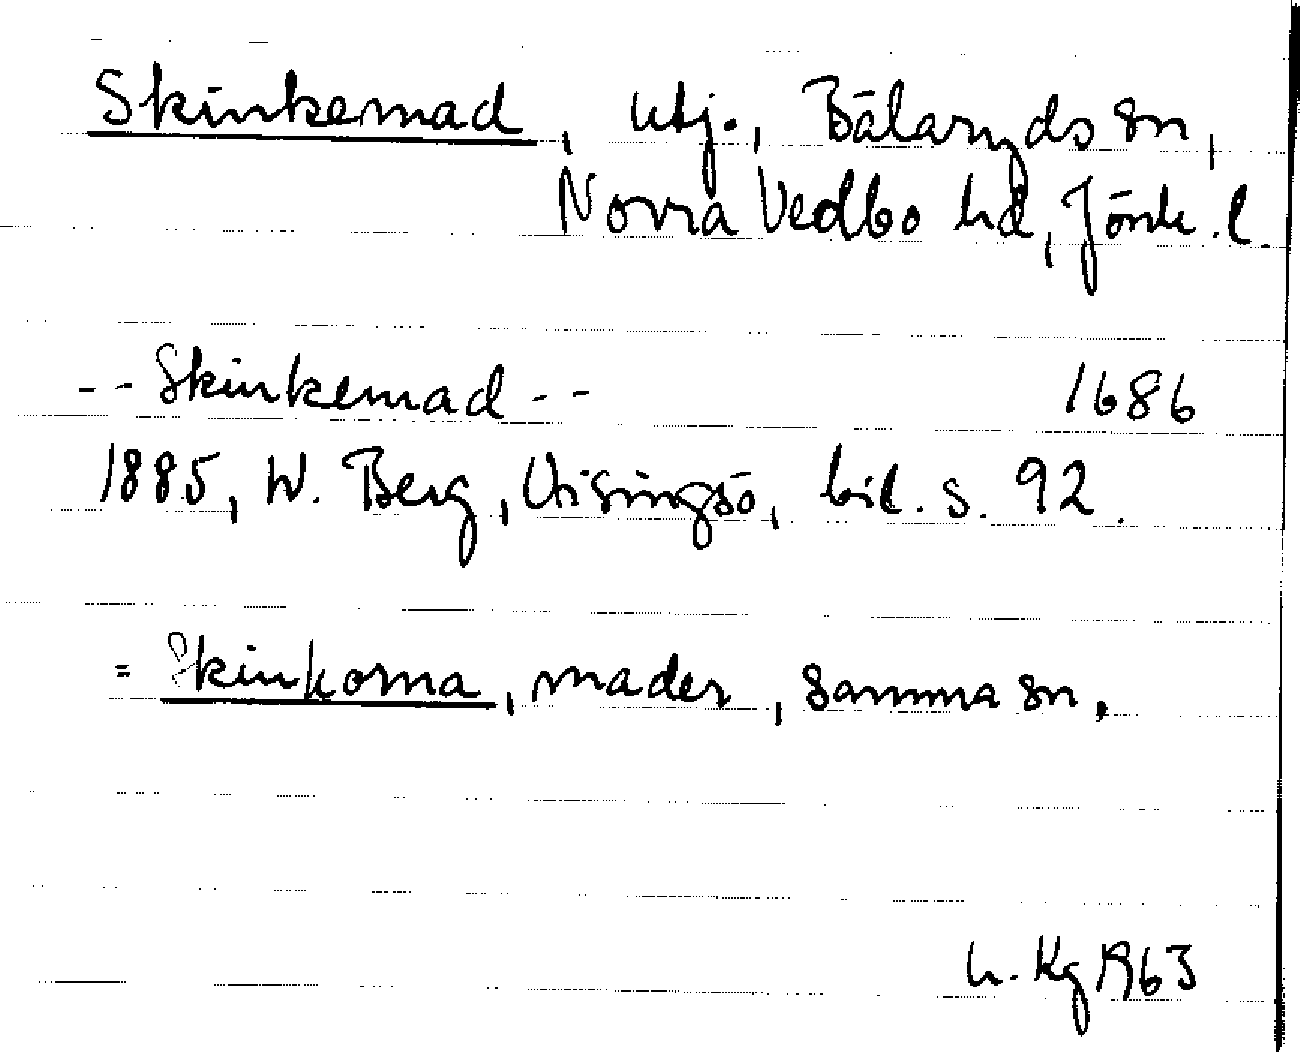 Skinkemad, utj., Bälaryds sn,
Norra Vedbo hd, Jönk. l.
-- Skinkemad -- 1686
1885, W. Berg, Visingsö, bil. s. 92.
= Skinkorna, mader, samma sn.
h. Kg 1963